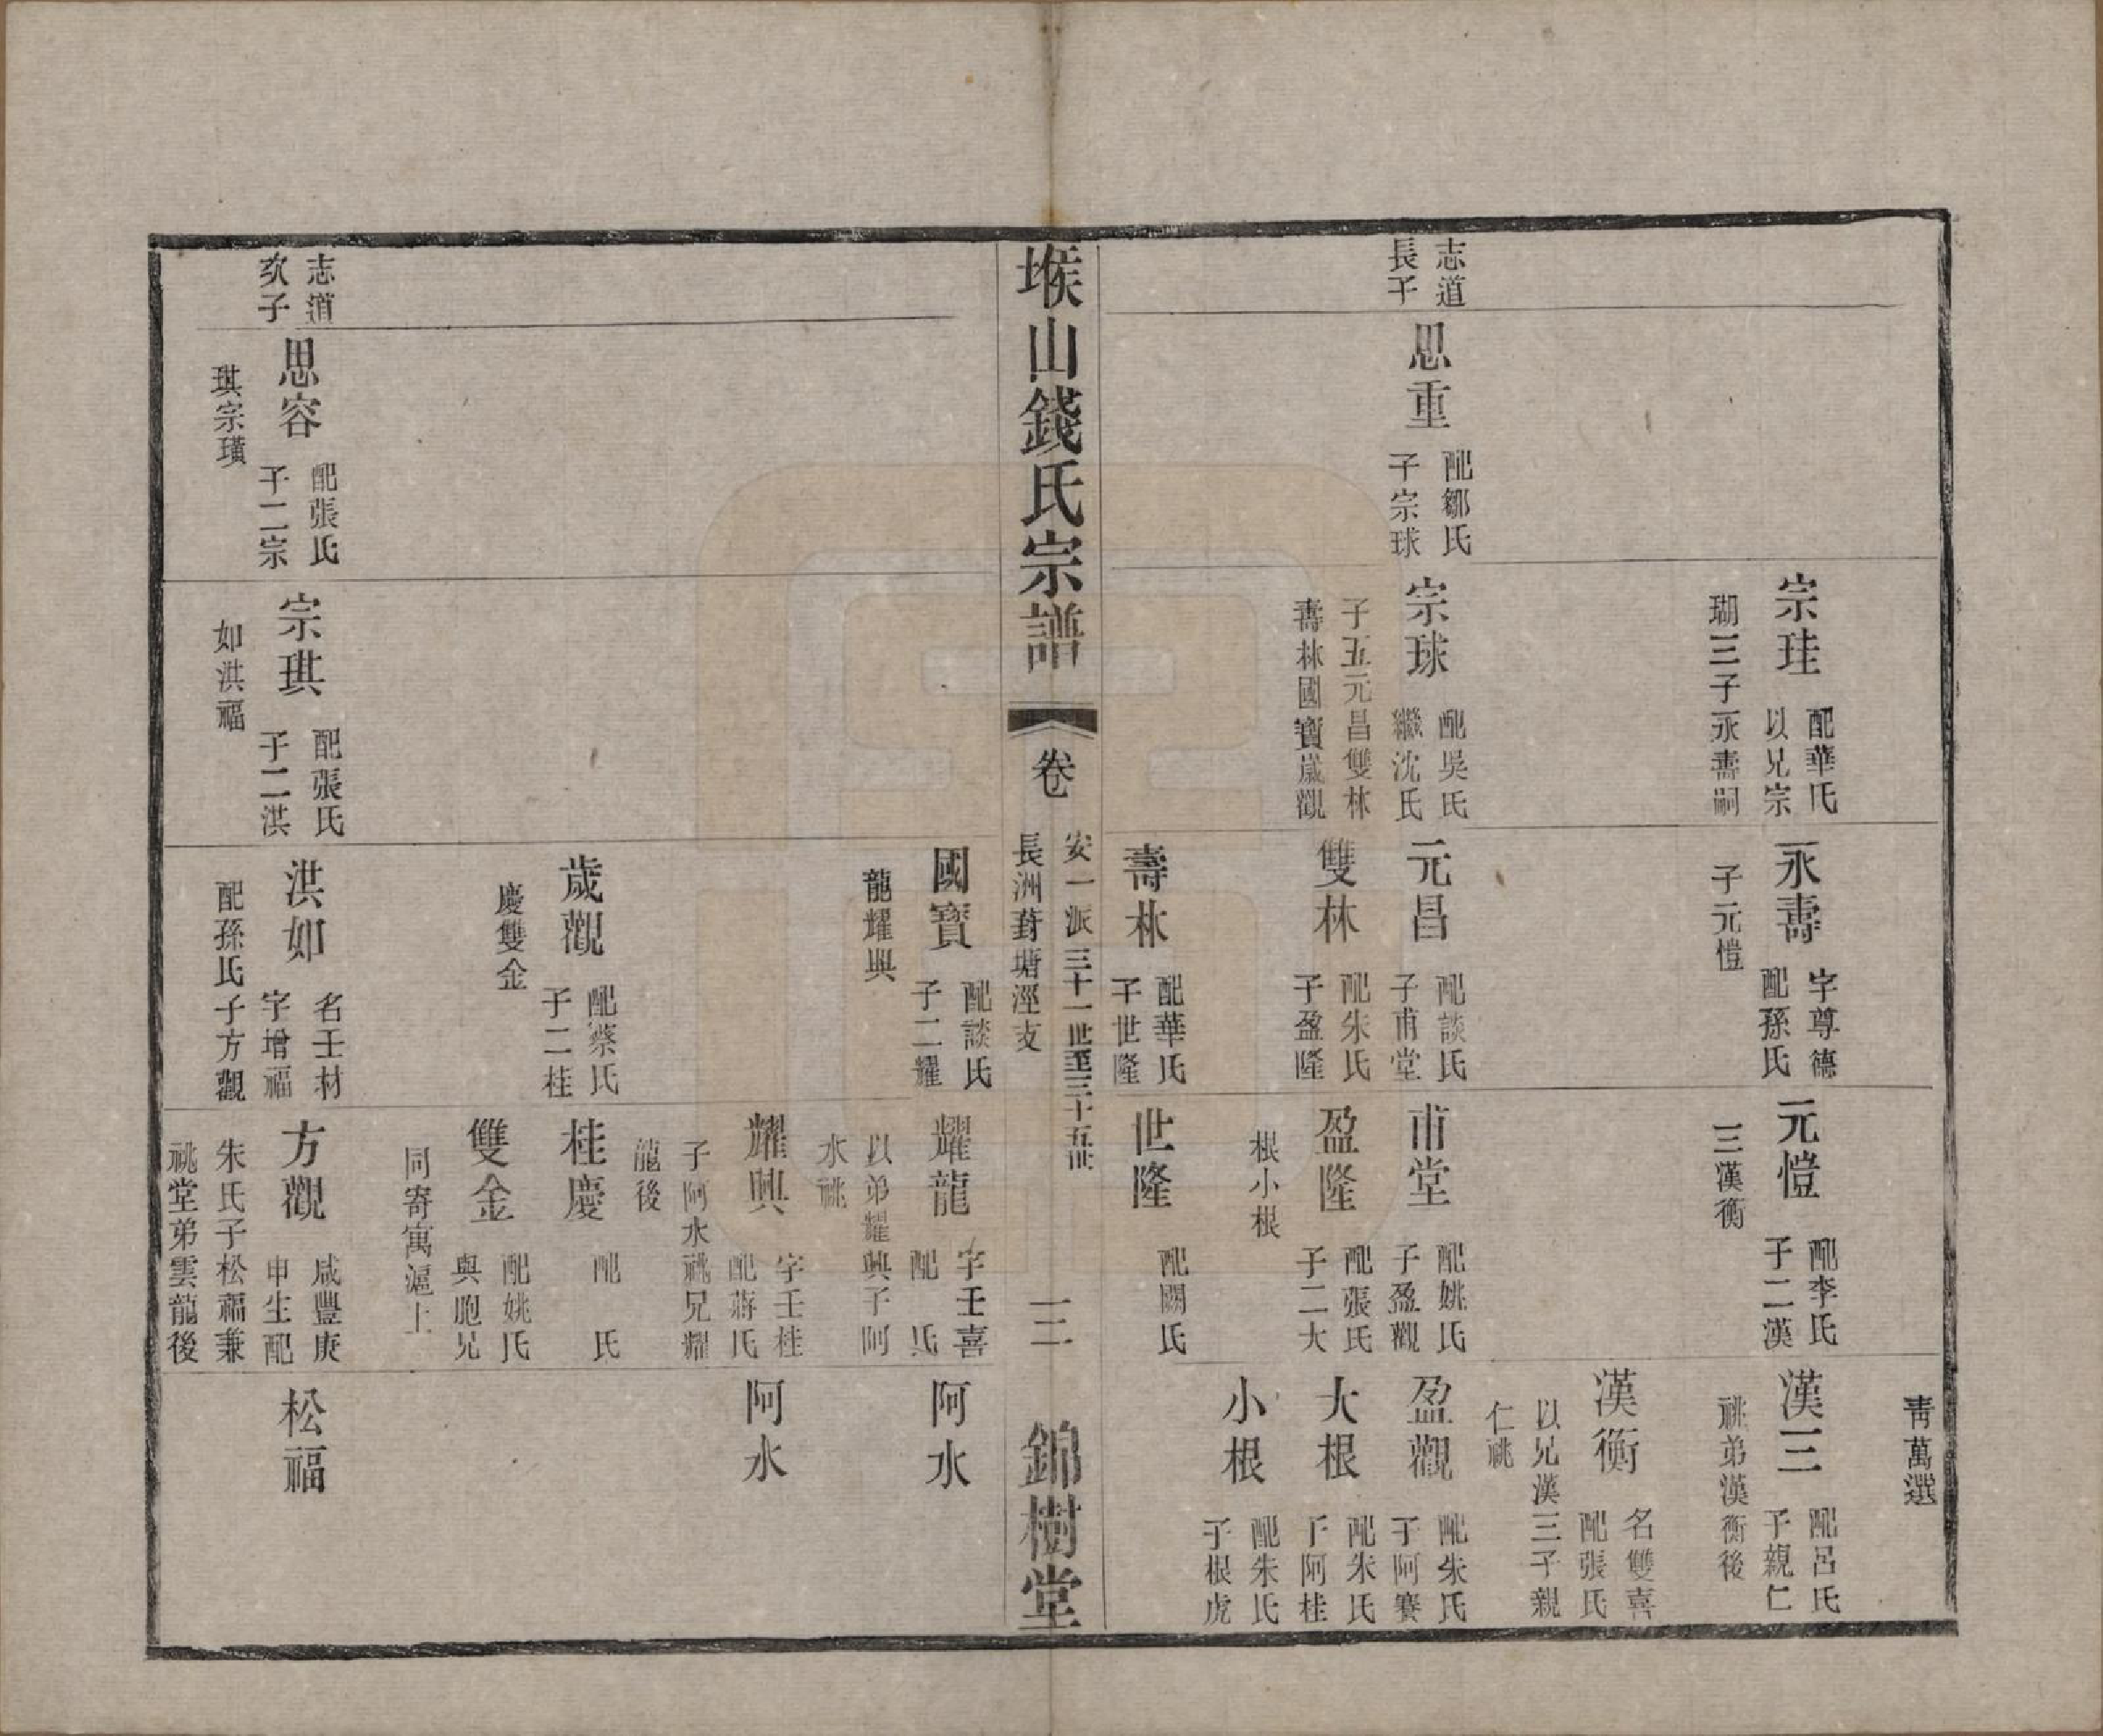 青萬選
宗珪
配華氏
以兄宗
瑚三子永壽嗣
永壽
字尊德
配孫氏
子元愷
元愷
配李氏
子二漢
三漢衡
漢三
配呂氏
子親仁
祧弟漢衡後
漢衡
名雙喜
配張氏
以兄漢三子親
仁祧
志道
長子
思重
配鄒氏
子宗球
宗球
配吳氏
繼沈氏
子五元昌雙林
壽林國寶歲觀
元昌
配談氏
子甫堂
甫堂
配姚氏
子盈觀
盈觀
配朱氏
子阿賽
雙林
配朱氏
子盈隆
盈隆
配張氏
子二大
根小根
大根
配朱氏
子阿桂
小根
配朱氏
子根虎
壽林
配華氏
子世隆
世隆
配闕氏
堠山錢氏宗譜
卷
安一派三十一世至三十五世
長洲葑塘涇支
三
錦樹堂
國寶
配談氏
子二耀
龍耀興
耀龍
字壬喜
配 氏
以弟耀興子阿
水祧
阿水
耀興
字壬桂
配蔣氏
子阿水祧兄耀
龍後
阿水
歲觀
配蔡氏
子二桂
慶雙金
桂慶
配 氏
雙金
配姚氏
與胞兄
同寄寓滬上
志道
次子
思容
配張氏
子二宗
琪宗璜
宗琪
配張氏
子二洪
如洪福
洪如
名壬材
字增福
配孫氏子方觀
方觀
咸豐庚
申生配
朱氏子松福兼
祧堂弟雲龍後
松福